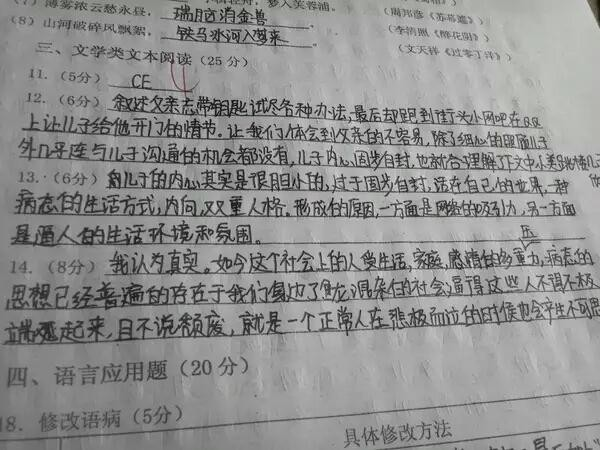 梦入芙蓉浦。
(7) 薄雾浓云愁永昼，瑞脑消金兽 (周邦彦《苏幕遮》)
(8) 山河破碎风飘絮，铁马冰河入梦来 (李清照《醉花阴》)
(文天祥《过零丁洋》)
三、文学类文本阅读 (25 分)
11. (5分) CE
12. (6分) 叙述父亲忘带钥匙试尽各种办法，最后却跑到街头小网吧在QQ
上让儿子给他开门的情节。让我们体会到父亲的不容易，除了细心的照顾儿子
外几乎连与儿子沟通的机会都没有，儿子内心固步自封，也就合理解了文中
13. (6分) 儿子的内心其实是很胆小的，过于固步自封，活在自己的世界，一种
病态的生活方式，内向，双重人格。形成的原因，一方面是网络的吸引力，另一方面
是逼人的生活环境和氛围。
压
14. (8分) 我认为真实。如今这个社会上的人受生活，家庭，感情的多重力，病态的
思想已经普遍的存在于我们身边了，混杂的社会逼得这些人不得不极
端起来，且不说颓废，就是一个正常人在悲极而泣的时候也会产生不可思
四、语言应用题 (20 分)
18. 修改语病 (5分)
具体修改方法